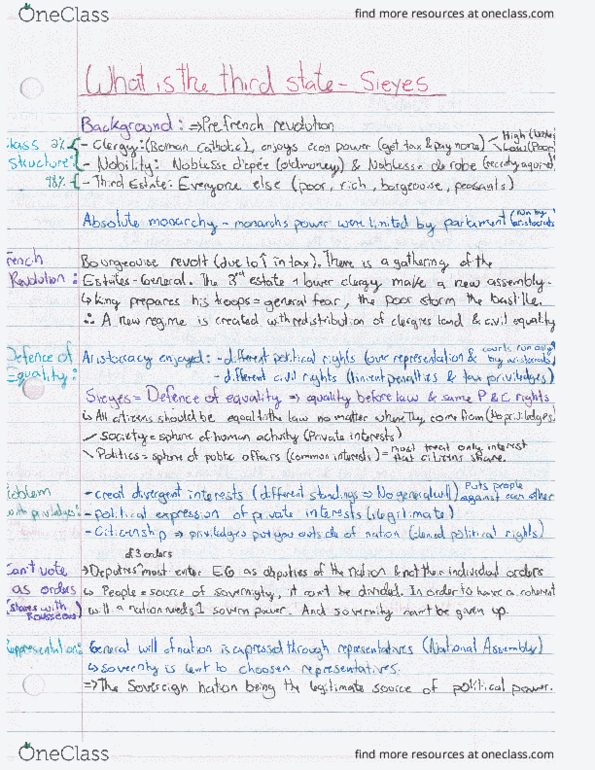 OneClass find more resources at oneclass.com
What is the third state - Sieyes
Background: ⇒ Pre french revolution
lass 2% - Clergy: (Roman Catholic), enjoys econ power (get tax & pay none) High Low (Poor)
Structure: - Nobility: Noblesse d'epée (old money) & Noblesse de robe (recently aquired)
98% - Third Estate: Everyone else (poor, rich, burgeouise, peasants)
Absolute monarchy - monarchs power were limited by parlament (run by aristocrats
rench Bourgeouise revolt (due to ↑ in tax). There is a gathering of the
Revolution: Estates-General. The 3rd estate + lower clergy make a new assembly.
↳ king prepares his troops = general fear, the poor storm the bastille.
∴ A new regime is created with redistribution of clergies land & civil equality
Defence of Aristocracy enjoyed: - different political rights (over representation & courts run only by aristocrats)
Equality: - different civil rights (linient penalties & tax priviledges)
Sieyes = Defence of equality ⇒ equality before law & same P & C rights
↳ All citizens should be equal to the law no matter where they come from (No priviledges)
Society = sphere of human activity (Private interests)
Politics = sphere of public affairs (common interests) = must treat only interest that citizens share.
roblem - creat divergent interests (different standings ⇒ No general will) Puts people against each other
with priviledges: - political expression of private interests (illegitimate)
- Citizenship ⇒ priviledges put you outside of nation (denied political rights)
of 3 orders
Can't vote → Deputies must enter EG as deputies of the nation & not their individual orders
as orders ↳ People = source of soverignty, it can't be divided. In order to have a coherent
(shares with Rousseau) will a nation needs 1 sovern power. And sovernity can't be given up.
Representation: General will of nation is expressed through representatives (National Assembly)
↳ sovernty is lent to choosen representatives.
⇒ The Sovereign nation being the legitimate source of political power.
OneClass find more resources at oneclass.com